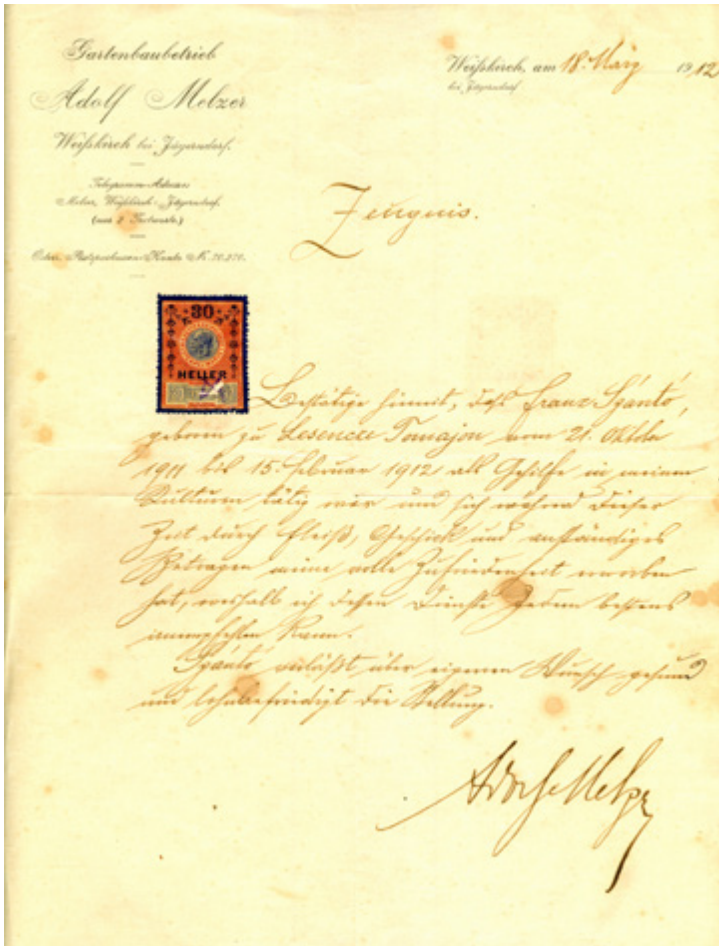 Gartenbaubetrieb
Adolf Melzer
Weißkirch bei Jägerndorf.
Telegramm-Adresse:
Melzer, Weißkirch-Jägerndorf.
Weißkirch, am 18. März 1912
bei Jägerndorf
Zeugnis.
30
HELLER
Bestätige hiemit, daß Franz Szántó,
geboren zu Lesencze Tomajon vom 21. Oktober
1911 bis 15. Februar 1912 als Gehilfe in meinen
Kulturen tätig war und sich während dieser
Zeit durch Fleiß, Geschick und anständiges
Betragen meine volle Zufriedenheit erworben
hat, weshalb ich dessen Dienste jedem bestens
anempfehlen kann.
Szántó verläßt über eigenen Wunsch gesund
und lohnbefriedigt die Stellung.
Adolf Melzer